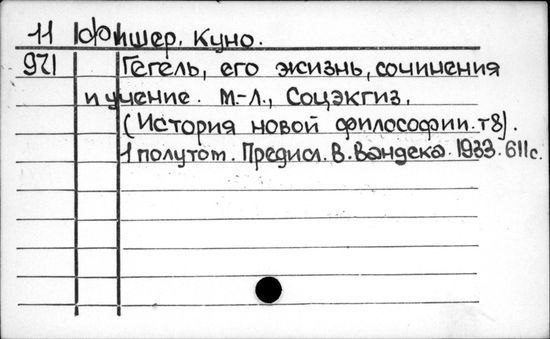 11 Фишер, Куно.
971 Гегель, его жизнь, сочинения
и учение. М.-Л., Соцэкгиз,
(История новой философии. т8).
1 полутом. Предисл. В. Вандека. 1933. 611с.